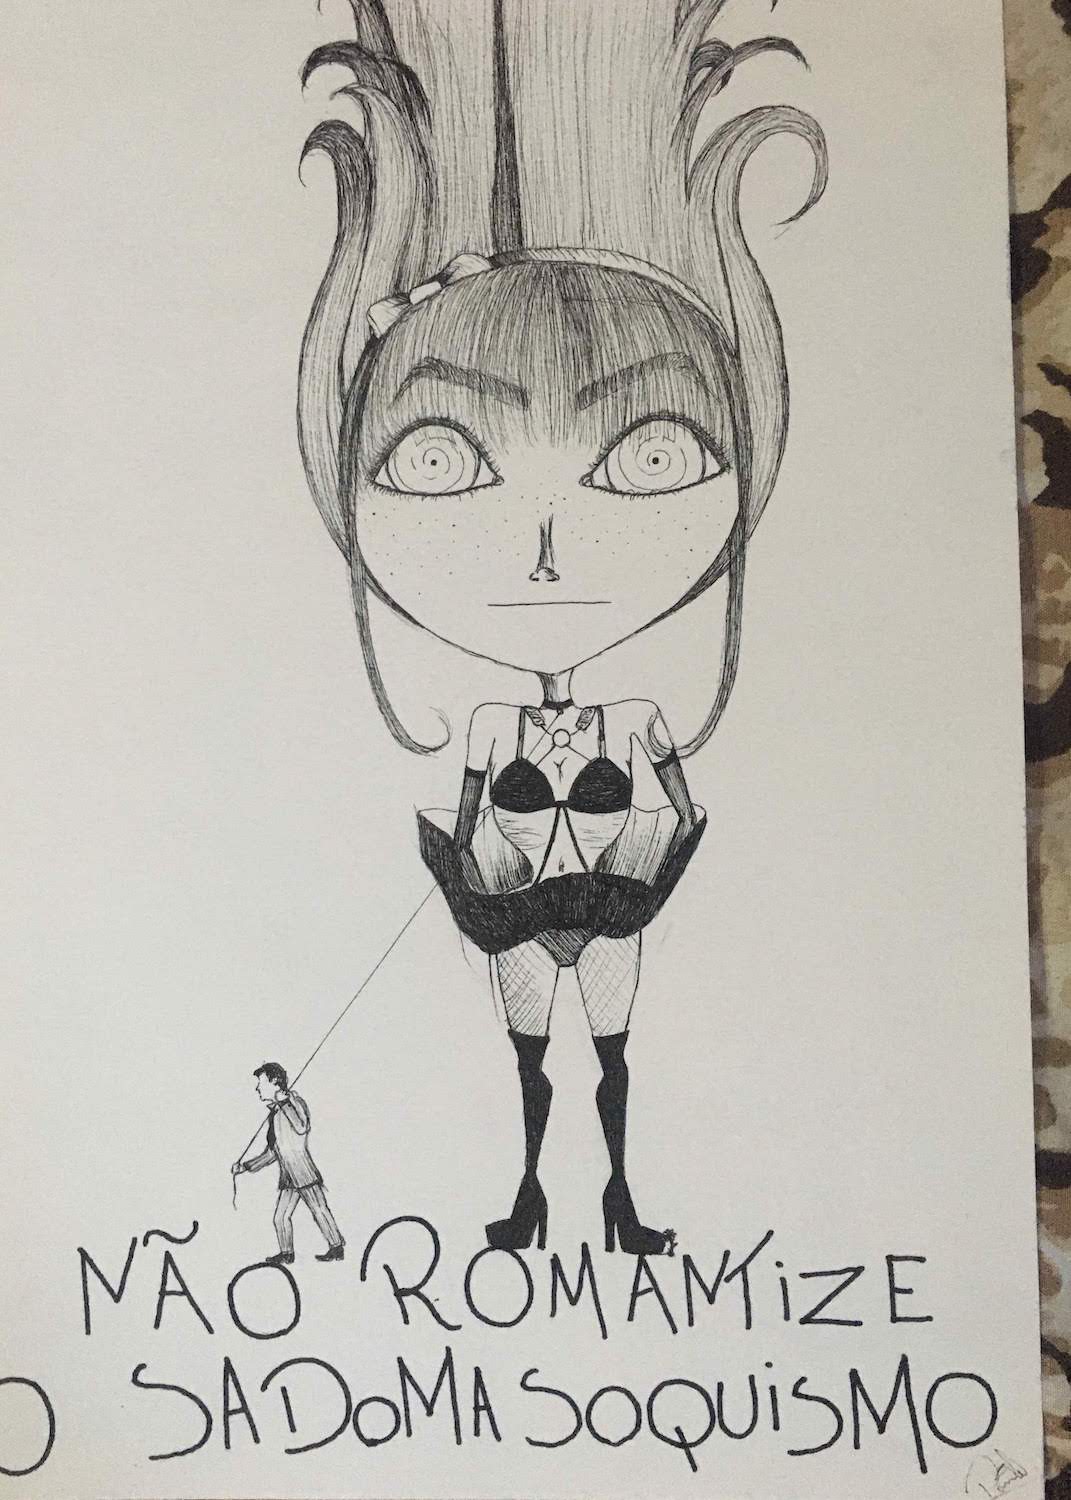 NÃO ROMANTIZE
O SADOMASOQUISMO